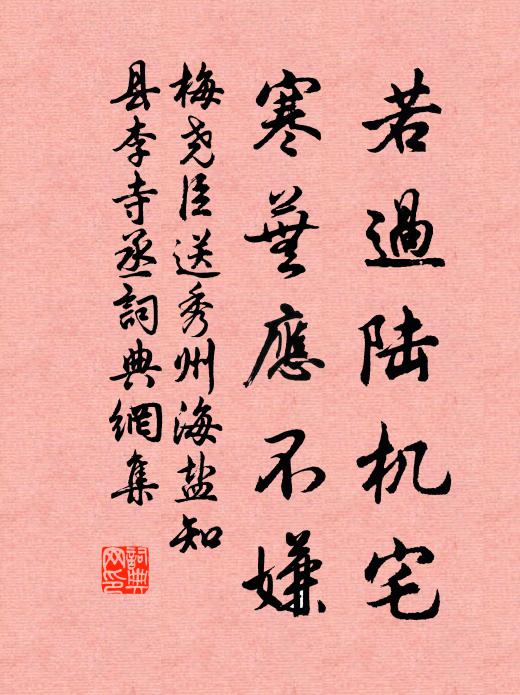 若過陆机宅
寒芜應不嫌
梅尧臣送秀州海盐知
县李寺丞詞典網集
詞典網印